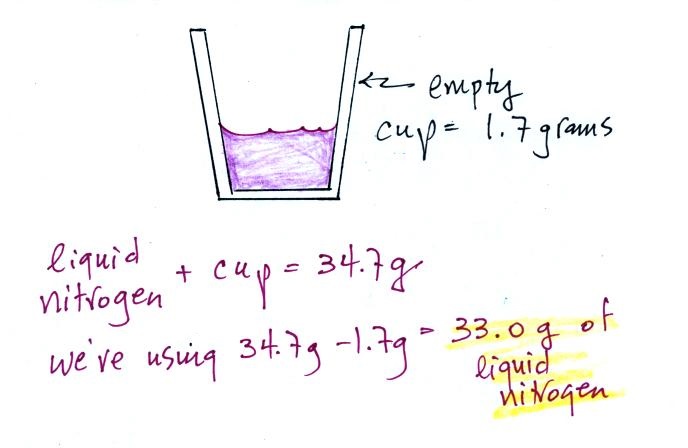 ← empty
cup = 1.7 grams
liquid
nitrogen + cup = 34.7g
we've using 34.7g - 1.7g = 33.0 g of
liquid
nitrogen